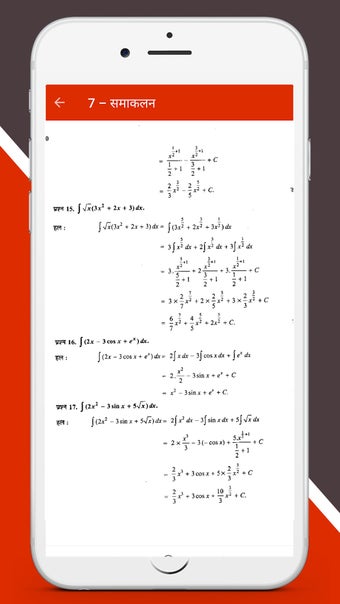 ← 7 – समाकलन
0
= x^(1/2+1)/(1/2+1) − x^(3/2+1)/(3/2+1) + C
= 2/3 x^(3/2) − 2/5 x^(5/2) + C.
प्रश्न 15. ∫√x(3x² + 2x + 3) dx.
हल : ∫√x(3x² + 2x + 3) dx = ∫(3x^(5/2) + 2x^(3/2) + 3x^(1/2)) dx
= 3∫x^(5/2) dx + 2∫x^(3/2) dx + 3∫x^(1/2) dx
= 3·x^(5/2+1)/(5/2+1) + 2·x^(3/2+1)/(3/2+1) + 3·x^(1/2+1)/(1/2+1) + C
= 3 × 2/7 x^(7/2) + 2 × 2/5 x^(5/2) + 3 × 2/3 x^(3/2) + C
= 6/7 x^(7/2) + 4/5 x^(5/2) + 2x^(3/2) + C.
प्रश्न 16. ∫(2x − 3 cos x + eˣ) dx.
हल : ∫(2x − 3 cos x + eˣ) dx = 2∫x dx − 3∫cos x dx + ∫eˣ dx
= 2·x²/2 − 3 sin x + eˣ + C
= x² − 3 sin x + eˣ + C.
प्रश्न 17. ∫(2x² − 3 sin x + 5√x) dx.
हल : ∫(2x² − 3 sin x + 5√x) dx = 2∫x² dx − 3∫sin x dx + 5∫√x dx
= 2 × x³/3 − 3(−cos x) + 5x^(1/2+1)/(1/2+1) + C
= 2/3 x³ + 3 cos x + 5 × 2/3 x^(3/2) + C
= 2/3 x³ + 3 cos x + 10/3 x^(3/2) + C.